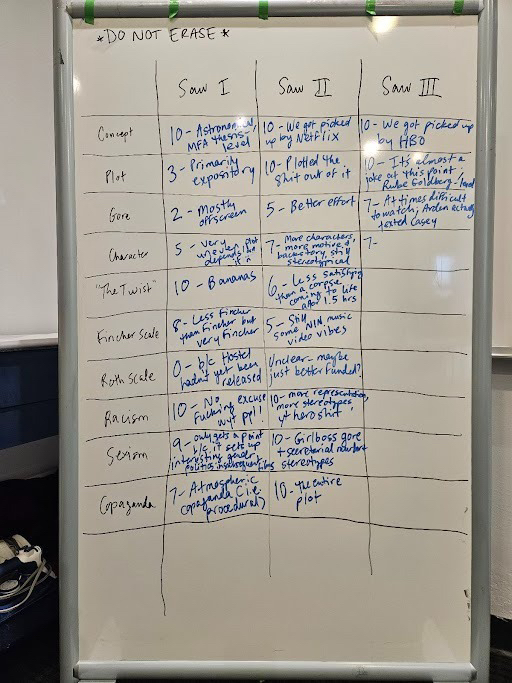 *DO NOT ERASE*
Saw I
Saw II
Saw III
Concept
10 - Astronomical,
MFA thesis-
level
10 - We got picked
up by Netflix
10 - We got picked up
by HBO
Plot
3 - Primarily
expository
10 - Plotted the
shit out of it
10 - It's almost a
joke at this point,
Rube Goldberg-level
Gore
2 - Mostly
offscreen
5 - Better effort
7 - At times difficult
to watch; Arden actually
texted Casey
Character
5 - very
uneven, plot
depends
7 - More characters,
more motive &
backstory, still
stereotypical
7 -
"The Twist"
10 - Bananas
6 - Less satisfying
than a corpse
coming to life
after 1.5 hrs
Fincher Scale
8 - Less Fincher
than Fincher but
very Fincher
5 - Still
some NIN music
video vibes
Roth Scale
0 - b/c Hostel
hadn't yet been
released
Unclear - maybe
just better funded?
Racism
10 - No
fucking excuse
wyt ppl!!
10 - more representation,
more stereotypes,
yt hero shit
Sexism
9 - only gets a point
b/c it sets up
interesting gender
politics in subsequent films
10 - Girlboss gore
+ secretarial
stereotypes
Copaganda
7 - Atmospheric
copaganda (i.e.
procedural)
10 - The entire
plot